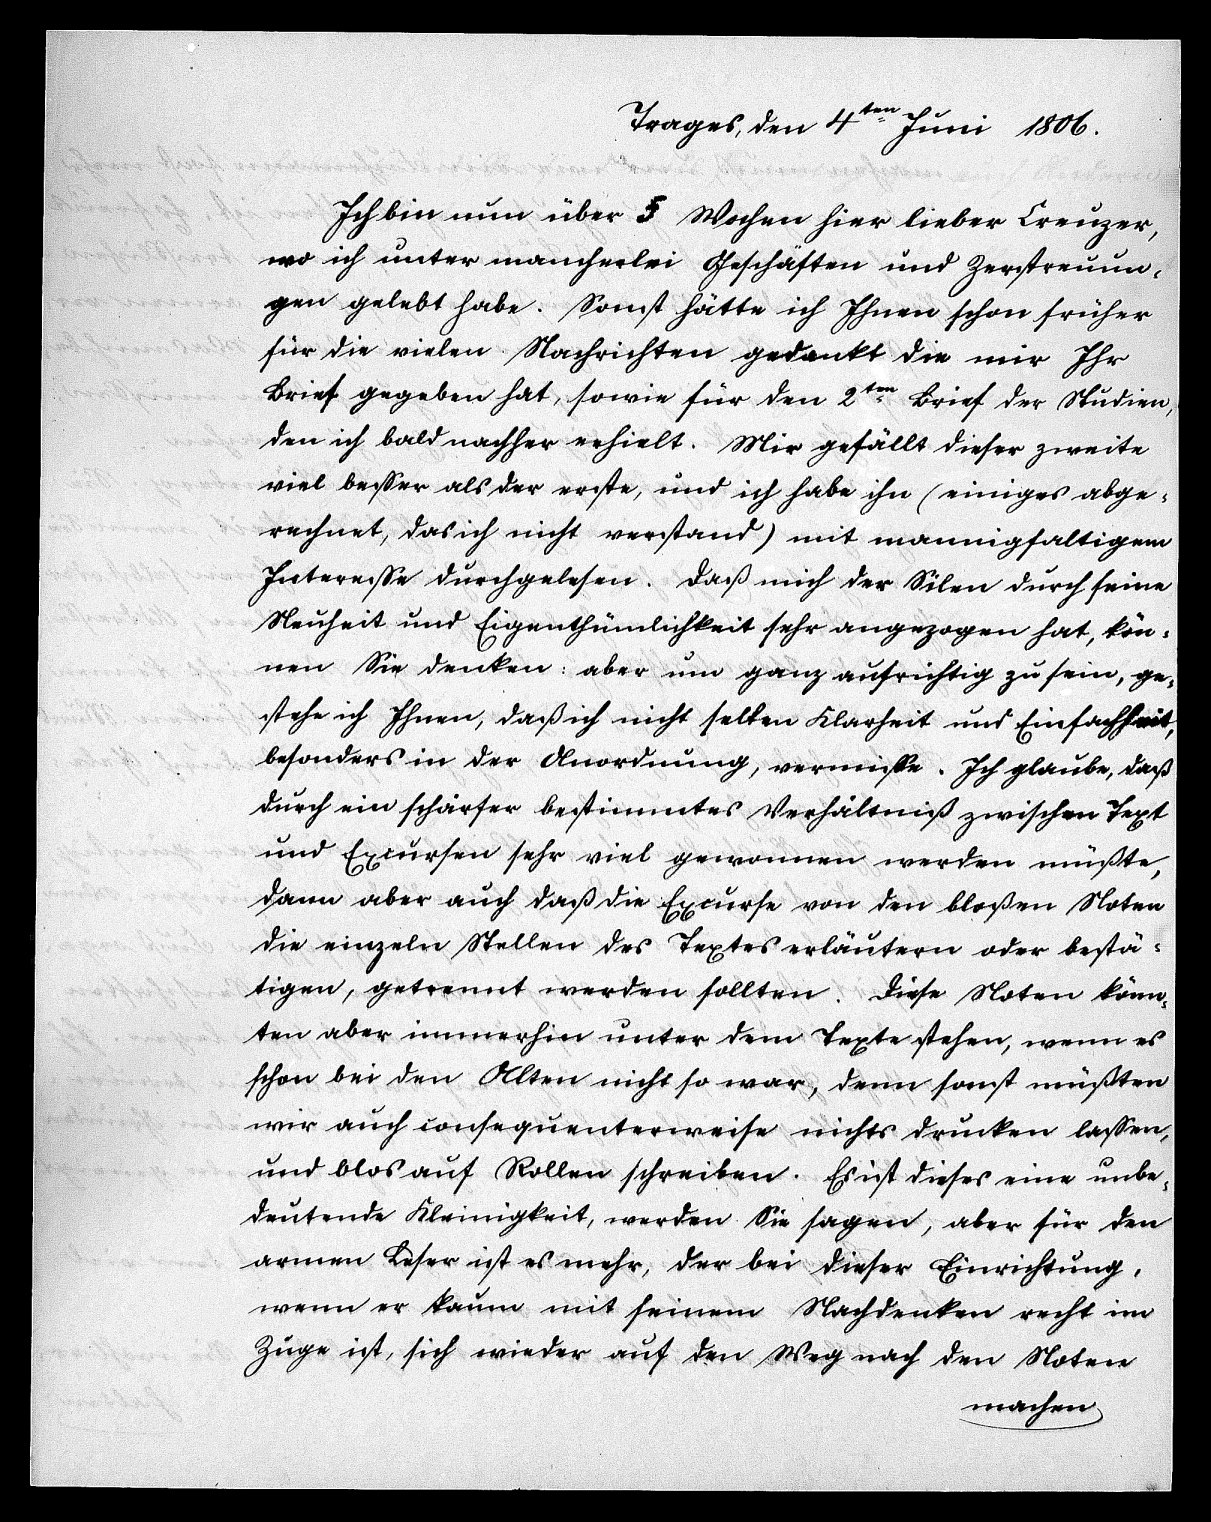 Trages, den 4ten Juni 1806.
Ich bin nun über 3 Wochen hier lieber Creuzer,
wo ich unter mancherlei Geschäften und Zerstreuun-
gen gelebt habe. Sonst hätte ich Ihnen schon früher
für die vielen Nachrichten gedankt die mir Ihr
Brief gegeben hat, sowie für den 2ten Brief der Studien,
den ich bald nachher erhielt. Mir gefällt dieser zweite
viel besser als der erste, und ich habe ihn (einiges abge-
rechnet, das ich nicht verstand) mit mannigfaltigem
Interesse durchgelesen. Daß mich der Silen durch seine
Neuheit und Eigenthümlichkeit sehr angezogen hat, kön-
nen Sie denken: aber um ganz aufrichtig zu sein, ge-
stehe ich Ihnen, daß ich nicht selten Klarheit und Einfachheit,
besonders in der Anordnung, vermisse. Ich glaube, daß
durch ein schärfer bestimmtes Verhältniß zwischen Text
und Excursen sehr viel gewonnen werden müßte,
dann aber auch daß die Excurse von den bloßen Noten
die einzeln Stellen des Textes erläutern oder bestä-
tigen, getrennt werden sollten. Diese Noten könn-
ten aber immerhin unter dem Texte stehen, wenn es
schon bei den Alten nicht so war, denn sonst müßten
wir auch consequenterweise nichts drucken lassen,
und blos auf Rollen schreiben. Es ist dieses eine unbe-
deutende Kleinigkeit, werden Sie sagen, aber für den
armen Leser ist es mehr, der bei dieser Einrichtung,
wenn er kaum mit seinem Nachdenken recht im
Zuge ist, sich wieder auf den Weg nach den Noten
machen